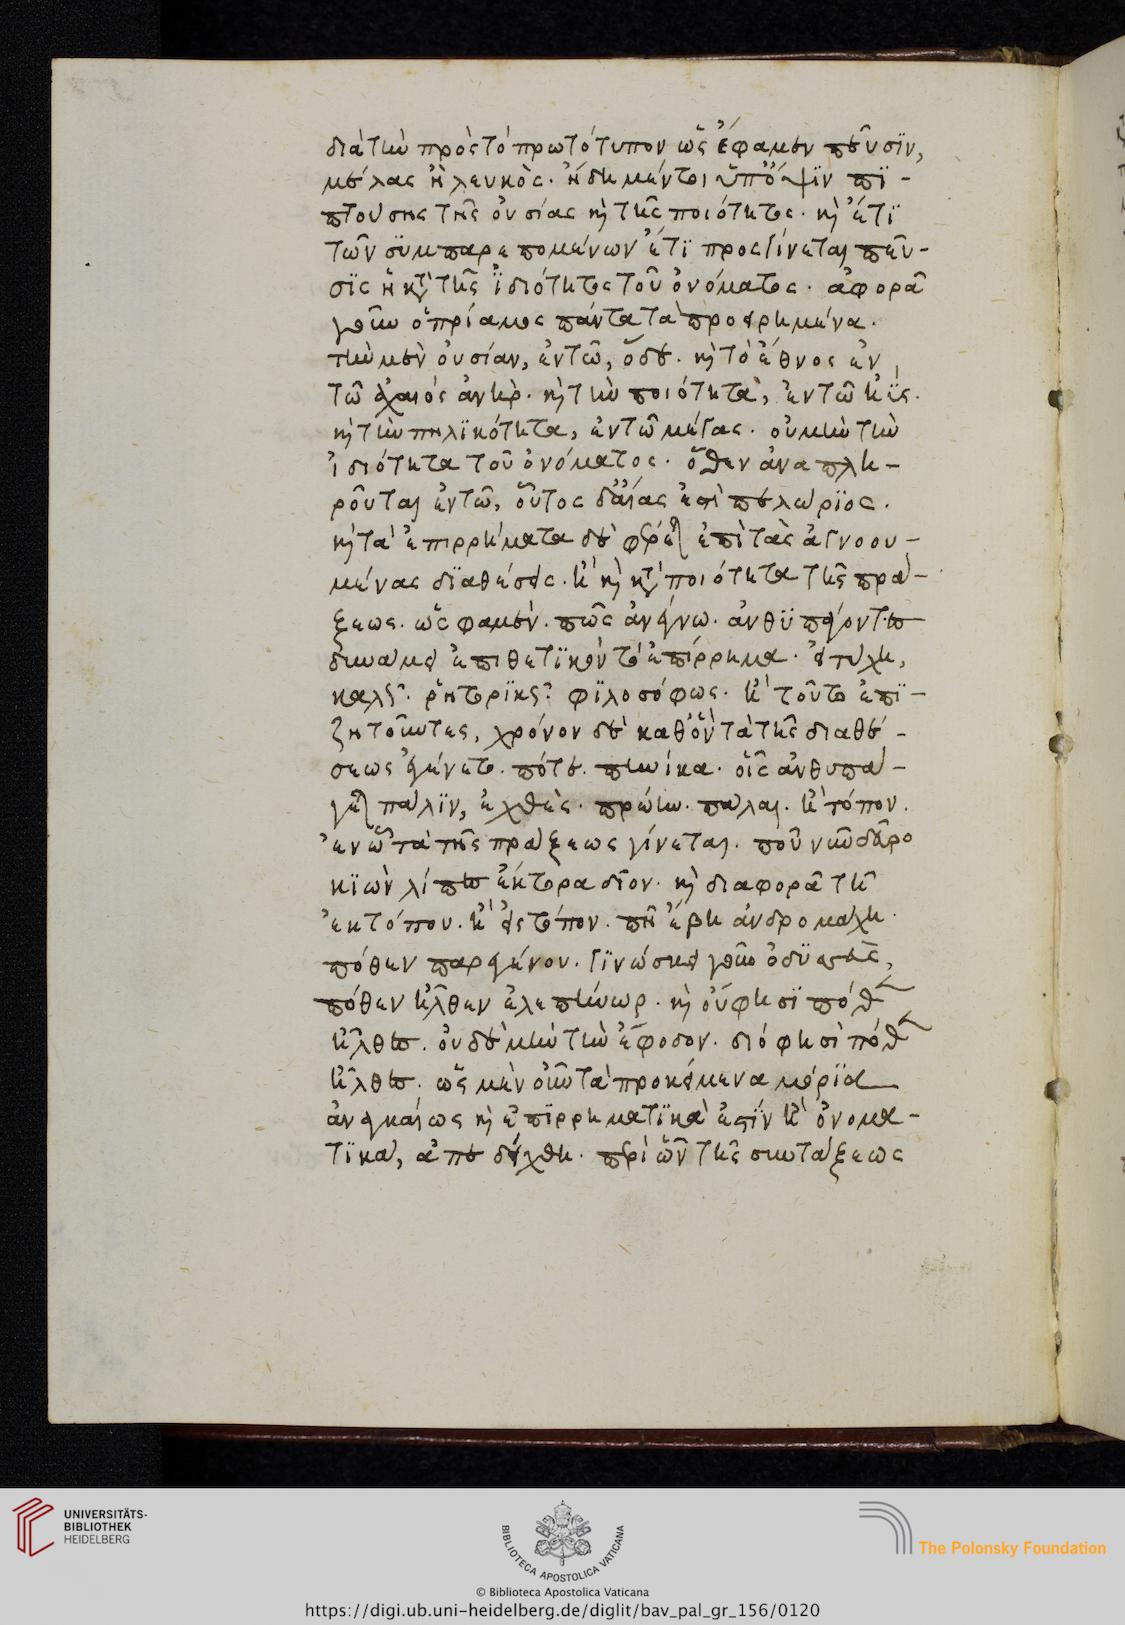 διὰ τὴν πρὸς τὸ πρωτότυπον ὡς ἔφαμεν πεῦσϊν,
μέλας ἢ λευκὸς. ἤδη μέντοι ὑπ' ὄψϊν πϊ-
πτούσης τῆς οὐσίας κὴ τῆς ποιότητος. κὴ ἔτϊ
τῶν σϋμπαρεπομένων ἔτϊ προσγίνεται πεῦ-
σϊς ἡ κτ' τῆς ϊδιότητος τοῦ ὀνόματος. ἀφορᾶ
γοῦν ὁ πρίαμος πάντα τὰ προειρημένα.
τὴν μὲν οὐσίαν, ἐν τῶ, ὅδε. κὴ τὸ ἔθνος ἐν
τῶ ἀχαιός ἀνὴρ. κὴ τὴν ποιότητὰ, ἐν τῶ ἠΰς.
κὴ τὴν πηλϊκότητα, ἐν τῶ μέγας. οὐ μὴν τὴν
ἰδιότητα τοῦ ὀνόματος. ὅθεν ἀναπλη-
ροῦται ἐν τῶ, οὗτος δ' αἴας ἐστὶ πελώρϊος.
κὴ τὰ ἐπιρρήματα δὲ φέρει ἐπὶ τὰς ἀγνοου-
μένας δϊαθέσεις. ἢ κὴ κτ' ποιότητα τῆς πρά-
ξεως. ὥς φαμὲν. πῶς ἀνέγνω. ἀνθϋπάγοντες
δυνάμει ἐπιθετϊκὸν τὸ ἐπίρρημα. εἰ τύχη,
καλῶς. ῥητορϊκῶς. φϊλοσόφως. ἢ τοῦτο ἐπϊ-
ζητοῦντες, χρόνον δὲ καθ' ὃν τὰ τῆς διαθέ-
σεως ἐγένετο. πότε. πηνίκα. οἷς ἀνθυπά-
γει πάλϊν, ἐχθὲς. πρώην. πάλαι. ἢ τόπον.
ἐν ᾧ τὰ τῆς πράξεως γίνεται. ποῦ νῦν δεῦρο
κϊὼν λίπες ἕκτορα δῖον. κὴ διαφορᾶ τῆ
ἐκ τόπου. ἢ εἰς τόπον. πῆ ἔβη ἀνδρομάχη
πόθεν παρεγένου. γϊνώσκει γοῦν ὀδϋσσεὺς,
πόθεν ἦλθεν ἐλεπήνωρ. κὴ οὔ φησϊ πόθεν
ἦλθες. οὐδὲ μὴν τὴν ἔφοδον. διό φησὶ πόθεν
ἦλθες. ὡς μὲν οὖν τὰ προκείμενα μόρϊα
ἀναγκαίως κὴ ἐπϊρρηματϊκὰ ἐστίν ἢ ὀνομα-
τϊκὰ, ἀπεδείχθη. περὶ ὧν τῆς συντάξεως
UNIVERSITÄTS-
BIBLIOTHEK
HEIDELBERG
BIBLIOTECA APOSTOLICA VATICANA
The Polonsky Foundation
© Biblioteca Apostolica Vaticana
https://digi.ub.uni-heidelberg.de/diglit/bav_pal_gr_156/0120